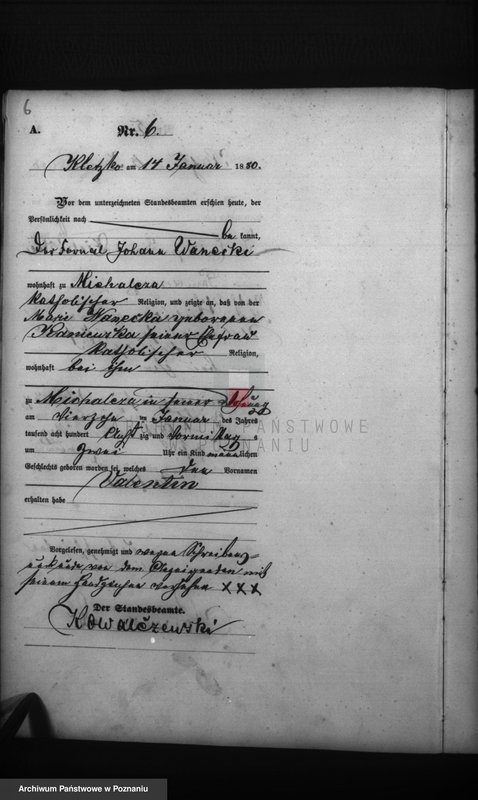 6
A.
Nr. 6.
Kletzko am 14 Januar 1880.
Vor dem unterzeichneten Standesbeamten erschien heute, der
Persönlichkeit nach
be kannt,
Der Fornal Johann Wanecki
wohnhaft zu Michalcza
katholischer Religion, und zeigte an, daß von der
Marie Wanecka geborenen
Kaniewska seiner Ehefrau
katholischer Religion,
wohnhaft bei ihm
zu Michalcza in seiner Wohnung
am Januar des Jahres
tausend acht hundert Acht zig und Vormittag s
um zwei Uhr ein Kind männlichen
Geschlechts geboren worden sei, welches den Vornamen
Valentin
erhalten habe
Vorgelesen, genehmigt und wegen Schreibens-
von dem Anzeigenden mit
seinem Handzeichen versehen XXX
Der Standesbeamte.
Kowalczewski
ARCHIWUM PAŃSTWOWE
W POZNANIU
Archiwum Państwowe w Poznaniu